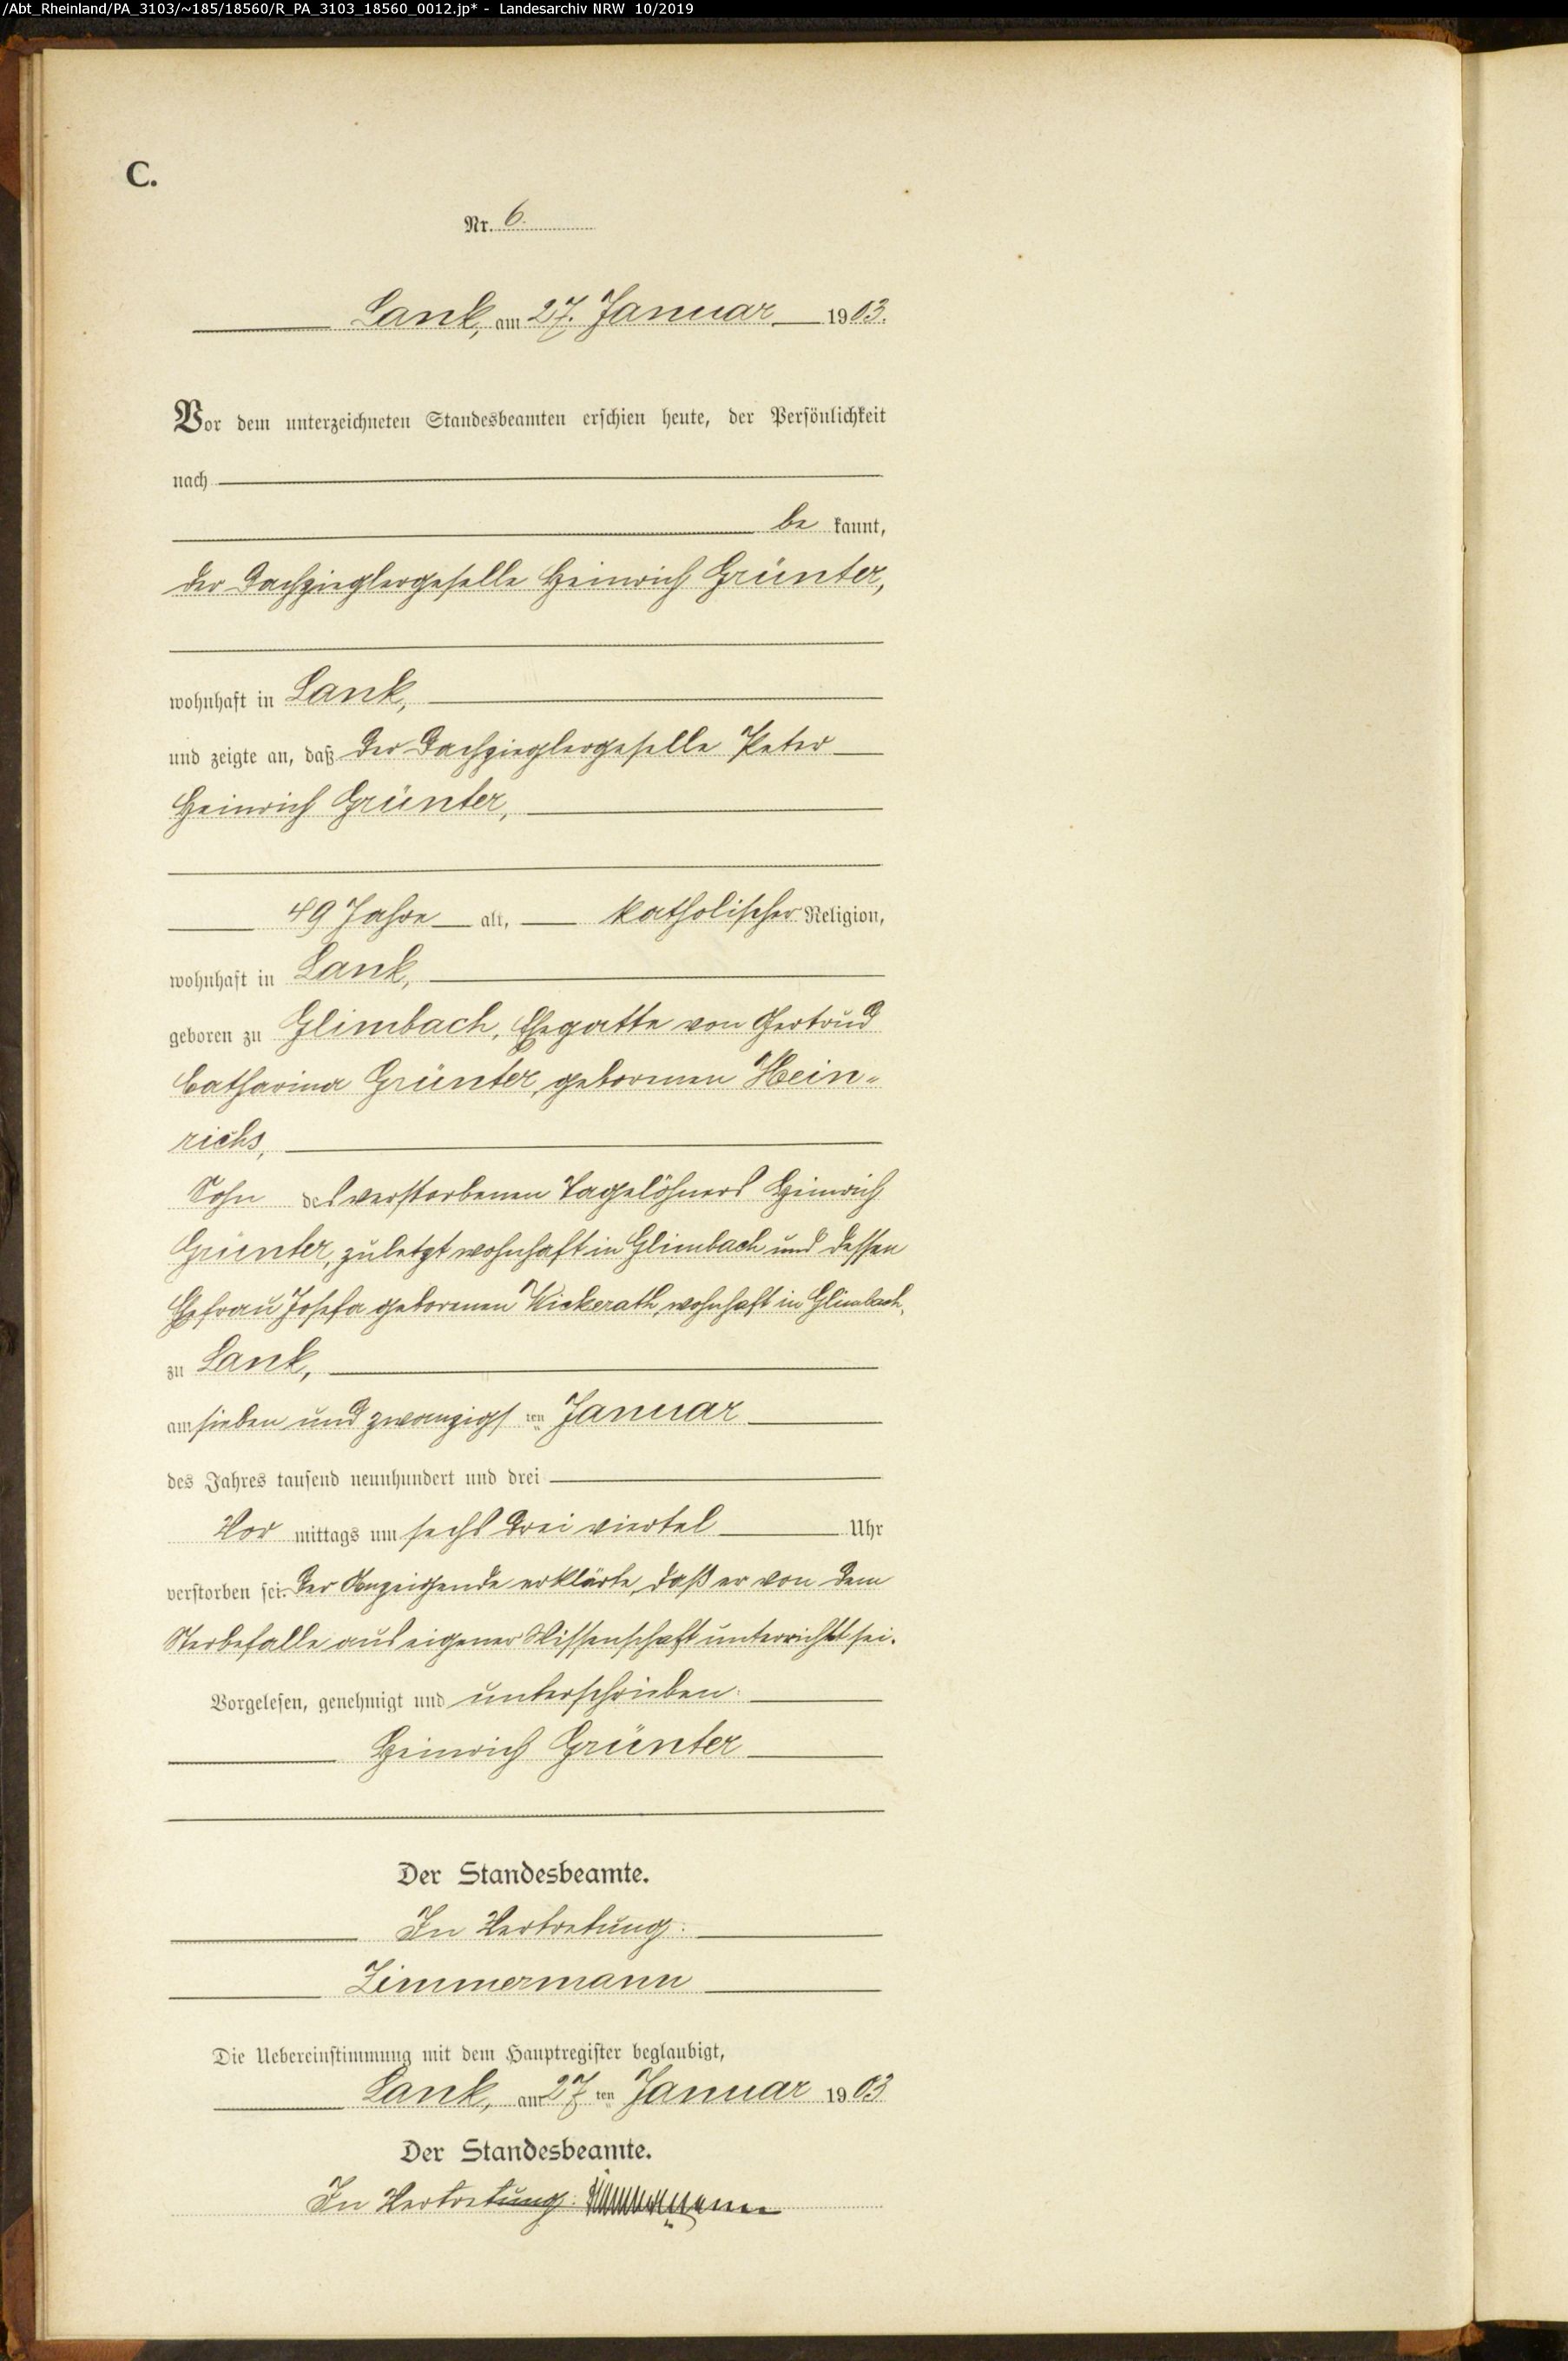 /Abt_Rheinland/PA_3103/~185/18560/R_PA_3103_18560_0012.jp* - Landesarchiv NRW 10/2019
C.
Nr. 6.
Lank, am 27. Januar 1903.
Vor dem unterzeichneten Standesbeamten erschien heute, der Persönlichkeit
nach
be kannt,
der Dachzieglergeselle Heinrich Grünter,
wohnhaft in Lank,
und zeigte an, daß der Dachzieglergeselle Peter
Heinrich Grünter,
49 Jahre alt, katholischer Religion,
wohnhaft in Lank,
geboren zu Glimbach, Ehegatte von Gertrud
Catharina Grünter, geborenen Hein-
richs,
Sohn des verstorbenen Tagelöhners Heinrich
Grünter, zuletzt wohnhaft in Glimbach und dessen
Ehefrau Josefa geborenen Wickerath, wohnhaft in Glimbach,
zu Lank,
am sieben und zwanzigsten Januar
des Jahres tausend neunhundert und drei
Vor mittags um sechs drei viertel Uhr
verstorben sei. Der Anzeigende erklärte, daß er von dem
Sterbefalle aus eigener Wissenschaft unterrichtet sei.
Vorgelesen, genehmigt und unterschrieben.
Heinrich Grünter
Der Standesbeamte.
In Vertretung:
Zimmermann
Die Uebereinstimmung mit dem Hauptregister beglaubigt,
Lank, am 27ten Januar 1903
Der Standesbeamte.
In Vertretung: Zimmermann